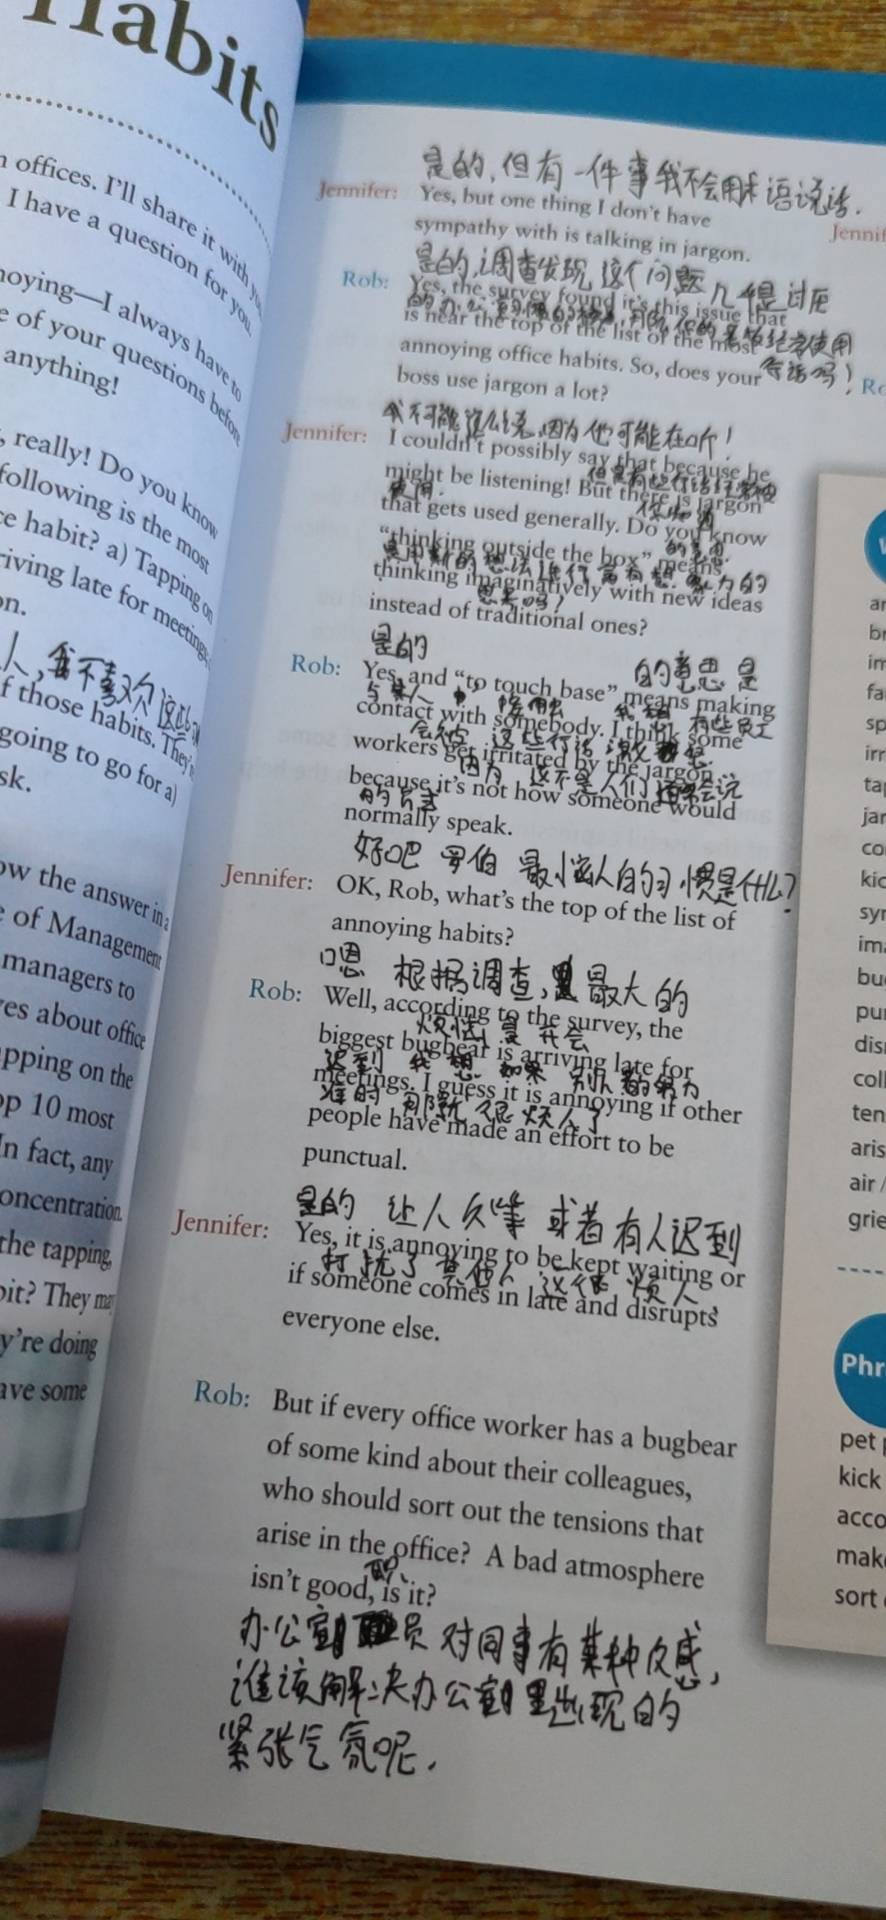 Habits
offices. I'll share it with you.
I have a question for you.
noying—I always have to
e of your questions before
anything!
, really! Do you know
following is the most
ce habit? a) Tapping on
riving late for meetings
on.
人，我不喜欢这些
f those habits. They're
going to go for a)
sk.
ow the answer in a
e of Management
managers to
ves about office
apping on the
op 10 most
In fact, any
oncentration.
the tapping,
bit? They may
y're doing
ave some
是的，但有一件事我不会用术语说话.
Jennifer: Yes, but one thing I don't have
sympathy with is talking in jargon.
是的，调查发现这个问题几乎是讨厌
Rob: Yes, the survey found it's this issue that
is near the top of the list of the most
经常使用
annoying office habits. So, does your
行话吗！
boss use jargon a lot?
我不可能这么说，因为他可能在听！
Jennifer: I couldn't possibly say that because he
might be listening! But there is jargon
使用.
that gets used generally. Do you know
你知道
"thinking outside the box" means
的意思
是用新的想法进行富有想象力的
thinking imaginatively with new ideas
思考吗？
instead of traditional ones?
是的
的意思是
Rob: Yes, and "to touch base" means making
与某人
contact with somebody. I think some
我想 有些员工
workers get irritated by the jargon
会被 这些行话激怒
because it's not how someone would
因为 这不是人们通常会说
的方式
normally speak.
好吧 罗伯 最恼人的习惯是什么？
Jennifer: OK, Rob, what's the top of the list of
annoying habits?
嗯 根据调查，最大的
Rob: Well, according to the survey, the
烦恼是开会
biggest bugbear is arriving late for
迟到 我想 如果 别人都努力
meetings. I guess it is annoying if other
准时 那就很烦人了
people have made an effort to be
punctual.
是的 让人久等 或者有人迟到
Jennifer: Yes, it is annoying to be kept waiting or
打扰了其他人 这很烦人
if someone comes in late and disrupts
everyone else.
Rob: But if every office worker has a bugbear
of some kind about their colleagues,
who should sort out the tensions that
arise in the office? A bad atmosphere
isn't good, is it?
职
办公室员对同事有某种反感，
谁该解决办公室里出现的
紧张气氛呢.
Jennif
Ro
ar
br
im
fa
sp
irr
ta
jar
co
kic
syr
im
bu
pu
dis
coll
ten
aris
air /
grie
Phr
pet p
kick
acco
make
sort o